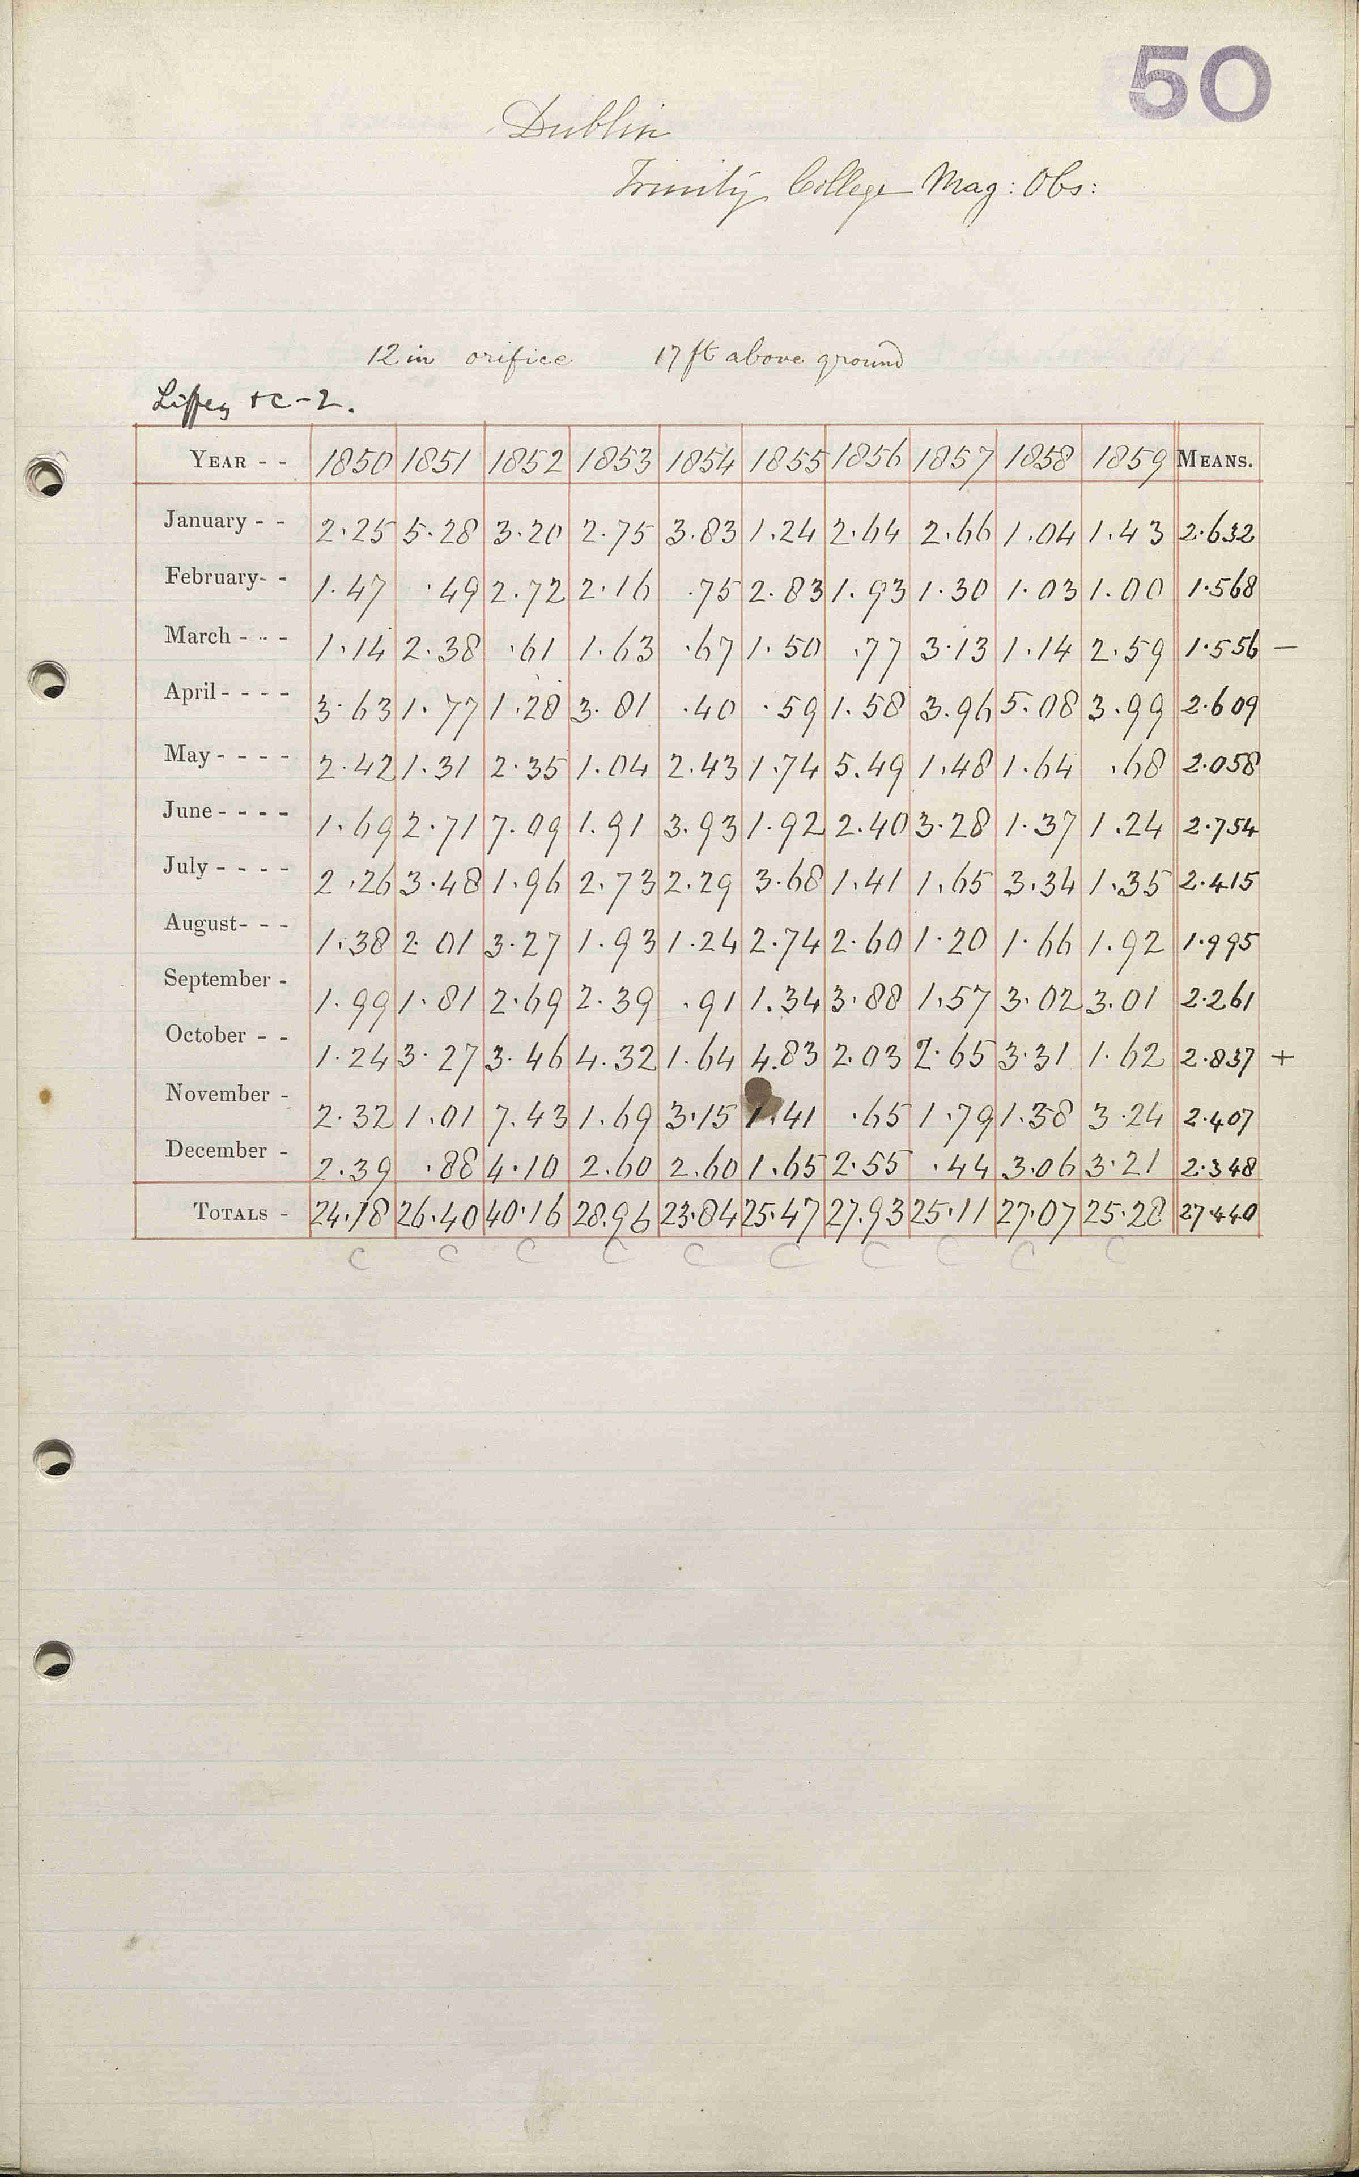 50
Dublin
Trinity College Mag: Obs:
12 in orifice 17 ft above ground
Liffey &c - 2.
YEAR - - 1850 1851 1852 1853 1854 1855 1856 1857 1858 1859 MEANS.
January - - 2.25 5.28 3.20 2.75 3.83 1.24 2.64 2.66 1.04 1.43 2.632
February- - 1.47 .49 2.72 2.16 .75 2.83 1.93 1.30 1.03 1.00 1.568
March - - - 1.14 2.38 .61 1.63 .67 1.50 .77 3.13 1.14 2.59 1.556 —
April - - - - 3.63 1.77 1.28 3.81 .40 .59 1.58 3.96 5.08 3.99 2.609
May - - - - 2.42 1.31 2.35 1.04 2.43 1.74 5.49 1.48 1.64 .68 2.058
June - - - - 1.69 2.71 7.09 1.91 3.93 1.92 2.40 3.28 1.37 1.24 2.754
July - - - - 2.26 3.48 1.96 2.73 2.29 3.68 1.41 1.65 3.34 1.35 2.415
August- - - 1.38 2.01 3.27 1.93 1.24 2.74 2.60 1.20 1.66 1.92 1.995
September - 1.99 1.81 2.69 2.39 .91 1.34 3.88 1.57 3.02 3.01 2.261
October - - 1.24 3.27 3.46 4.32 1.64 4.83 2.03 2.65 3.31 1.62 2.837 +
November - 2.32 1.01 7.43 1.69 3.15 1.41 .65 1.79 1.38 3.24 2.407
December - 2.39 .88 4.10 2.60 2.60 1.65 2.55 .44 3.06 3.21 2.348
TOTALS - 24.18 26.40 40.16 28.96 23.84 25.47 27.93 25.11 27.07 25.28 27.440
C C C C C C C C C C